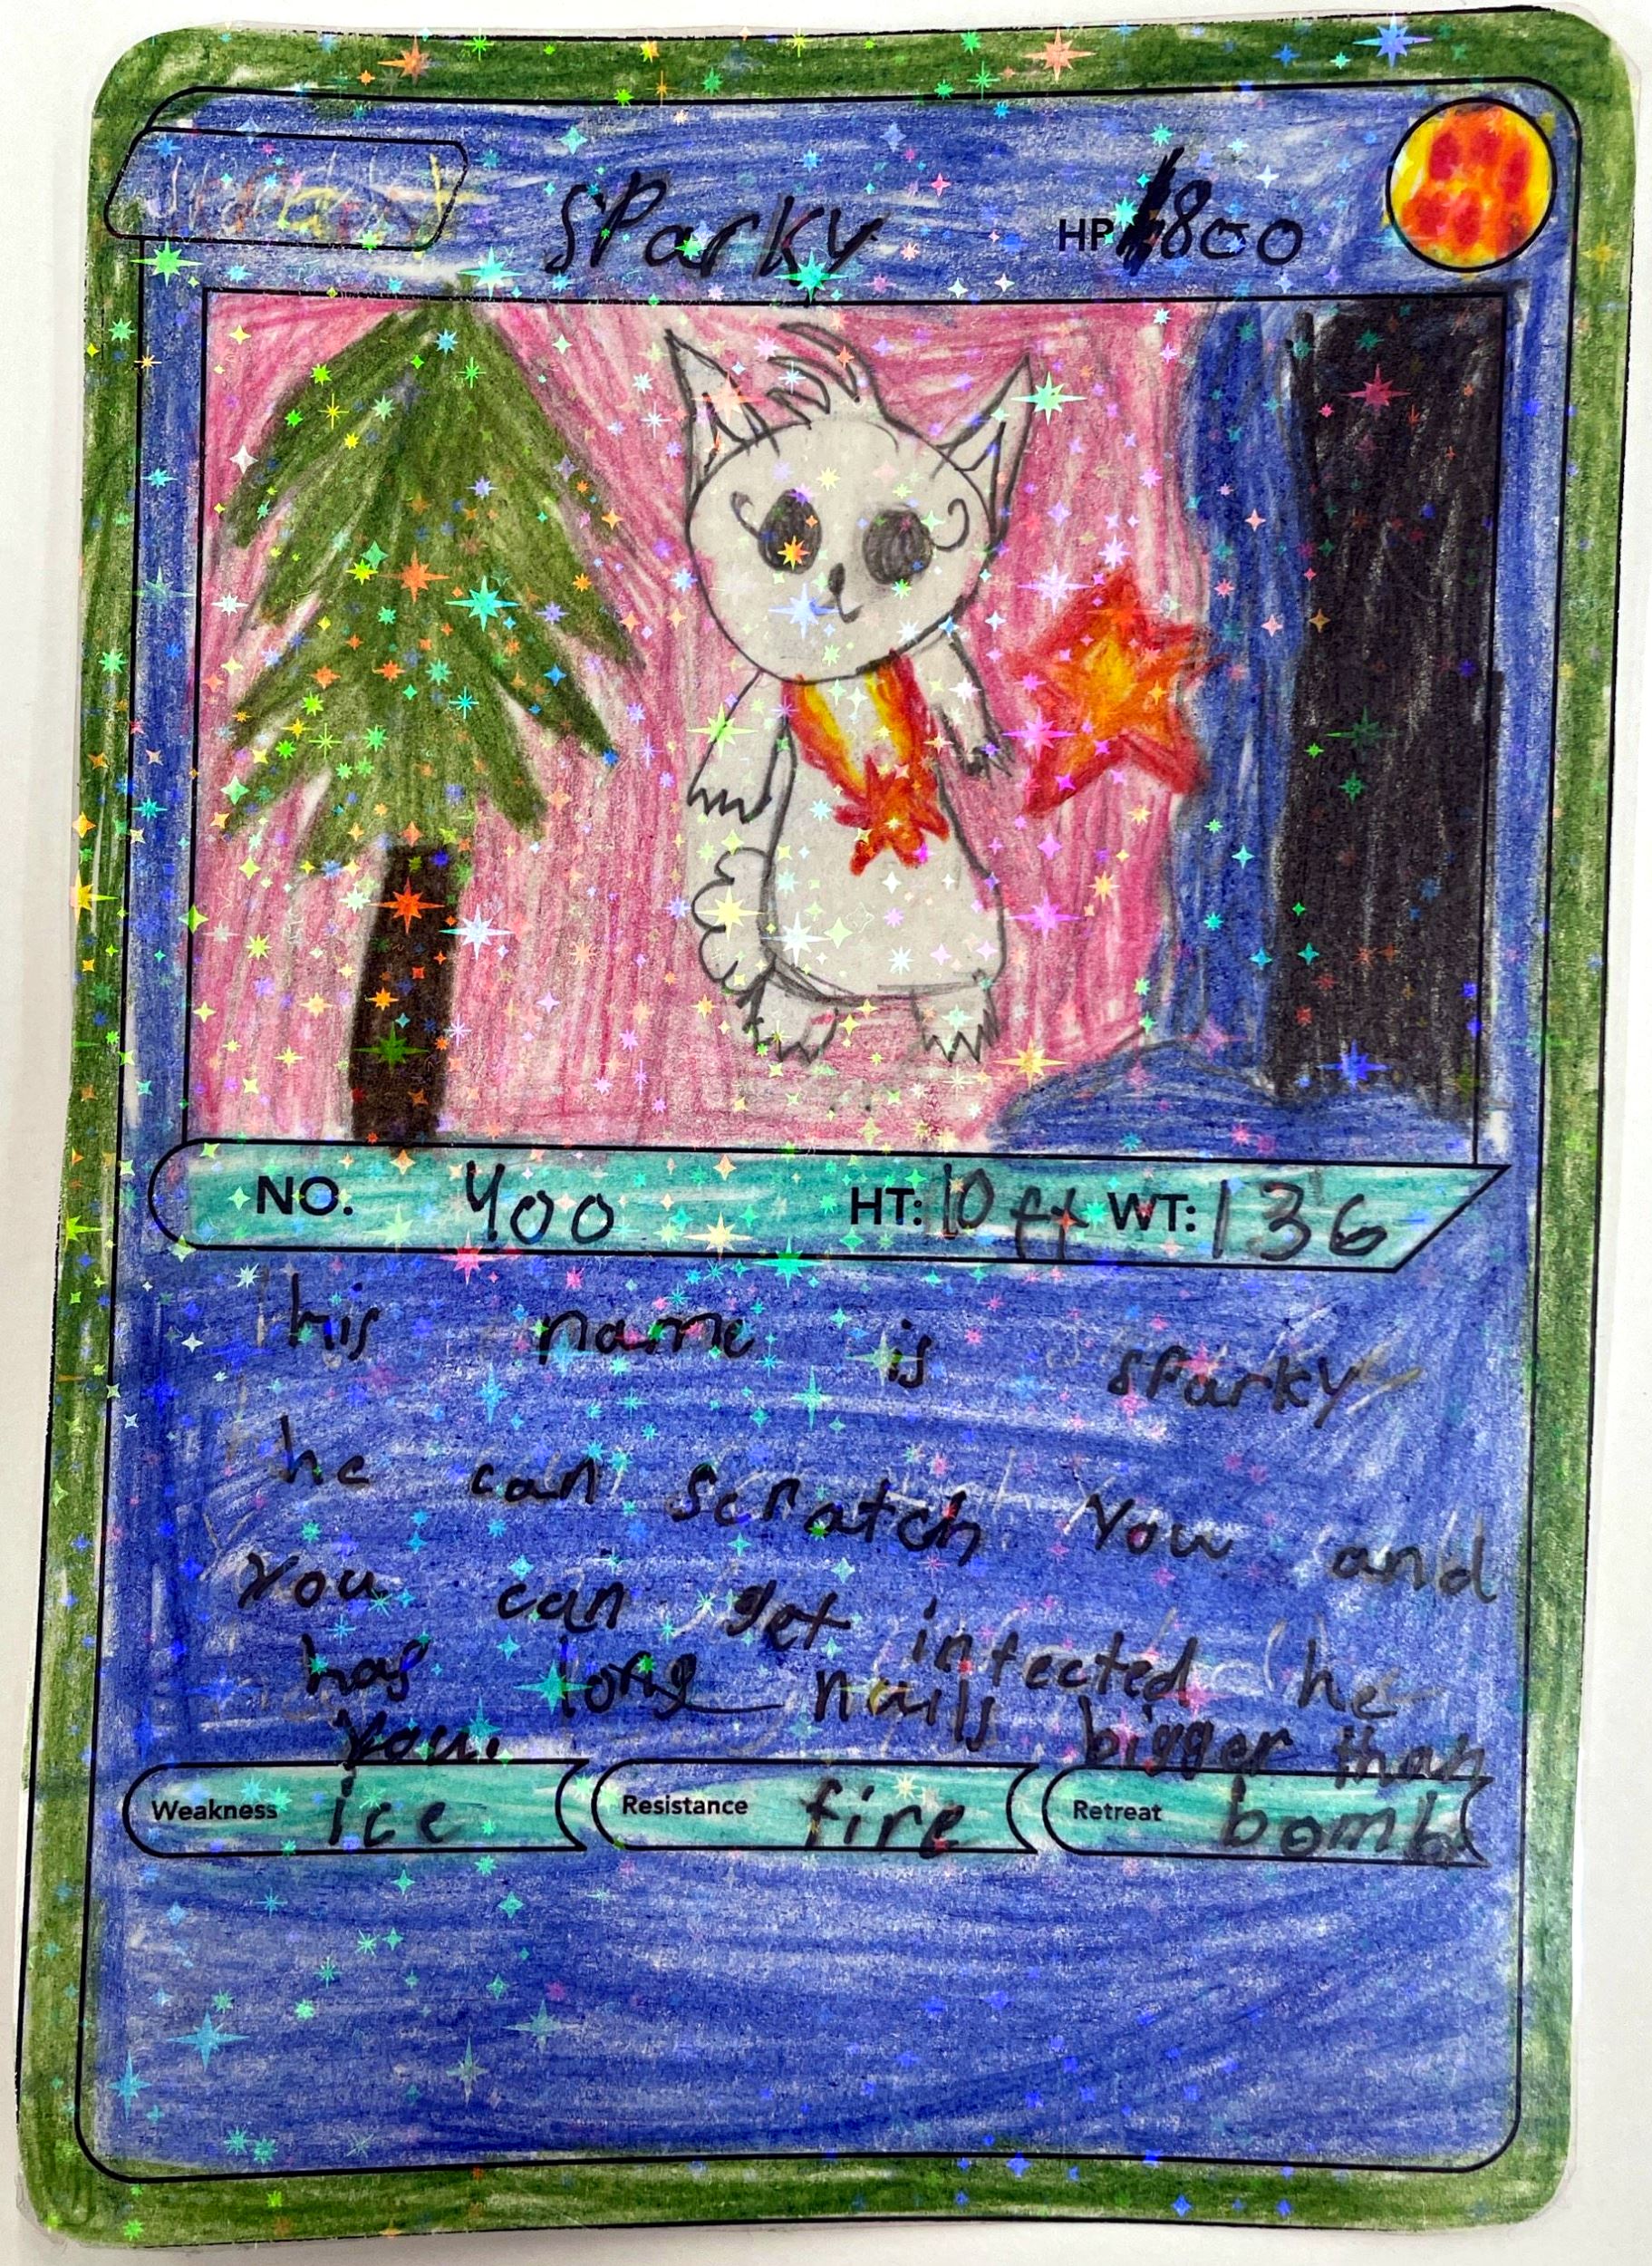 sParky HP 800
NO. 400 HT: 10 ft WT: 136
his name is sparky
he can scratch You and
You can get infected he
has long nails bigger than
you.
Weakness ice Resistance fire Retreat bomb